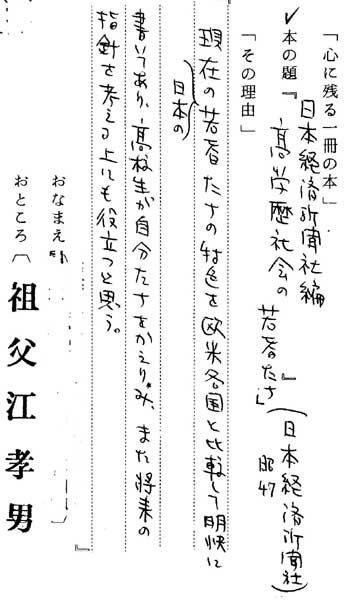 「心に残る一冊の本」
日本経済新聞社編
✓本の題『高学歴社会の若者たち』(日本経済新聞社)
昭47
「その理由」
現在の日本の若者たちの特色を欧米各国と比較して明快に
書いてあり、高校生が自分たちをかえりみ、また将来の
指針を考える上にも役立つと思う。
おなまえ
おところ
祖父江孝男